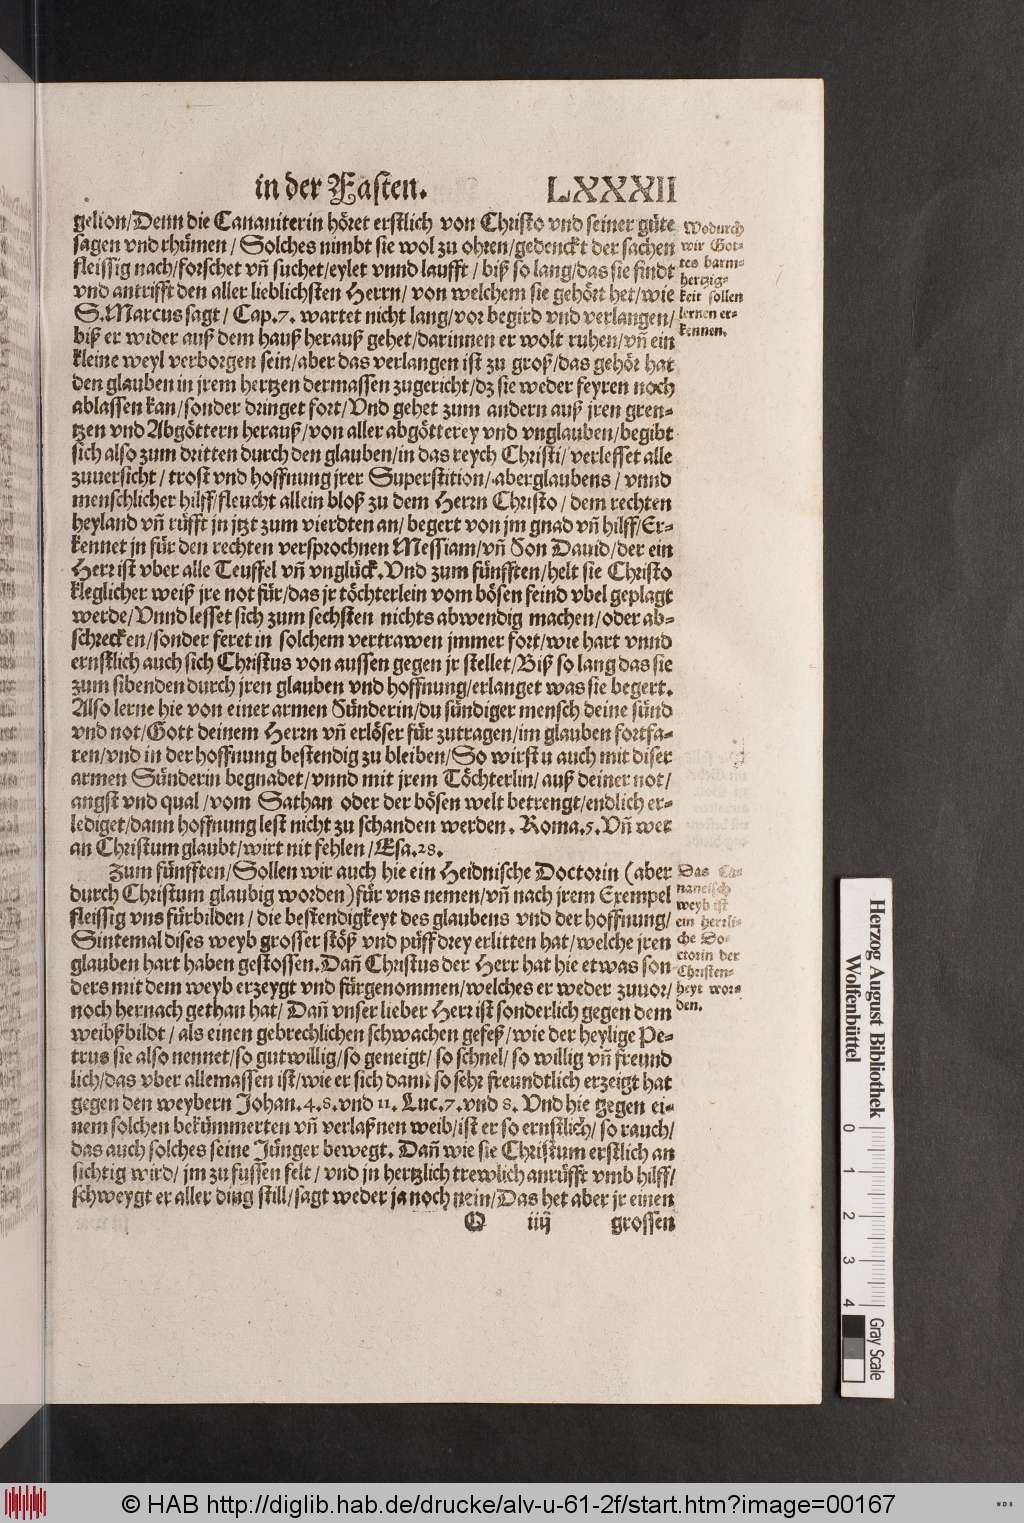 in der Fasten. LXXXII
gelion/Denn die Cananiterin höret erstlich von Christo vnd seiner güte
sagen vnd rhümen / Solches nimbt sie wol zu ohren/gedenckt der sachen
fleissig nach/forschet vñ suchet/eylet vnnd laufft / biß so lang/das sie findt
vnd antrifft den aller lieblichsten Herrn/ von welchem sie gehört het/wie
S.Marcus sagt / Cap.7. wartet nicht lang/vor begird vnd verlangen/
biß er wider auß dem hauß herauß gehet/darinnen er wolt ruhen/vñ ein
kleine weyl verborgen sein/aber das verlangen ist zu groß/das gehör hat
den glauben in jrem hertzen dermassen zugericht/dz sie weder feyren noch
ablassen kan/sonder dringet fort/Vnd gehet zum andern auß jren gren-
tzen vnd Abgöttern herauß/von aller abgötterey vnd vnglauben/begibt
sich also zum dritten durch den glauben/in das reych Christi/ verlesset alle
zuuersicht/ trost vnd hoffnung jrer Superstition/aberglaubens / vnnd
menschlicher hilff/fleucht allein bloß zu dem Herrn Christo / dem rechten
heyland vñ rüfft jn jtzt zum vierdten an/ begert von jm gnad vñ hilff/Er-
kennet jn für den rechten versprochnen Messiam/vñ Son Dauid/der ein
Herr ist vber alle Teuffel vñ vnglück.Vnd zum fünfften/helt sie Christo
kleglicher weiß jre not für/das jr töchterlein vom bösen feind vbel geplagt
werde/Vnnd lesset sich zum sechsten nichts abwendig machen/oder ab-
schrecken/sonder feret in solchem vertrawen jmmer fort/wie hart vnnd
ernstlich auch sich Christus von aussen gegen jr stellet/Biß so lang das sie
zum sibenden durch jren glauben vnd hoffnung/erlanget was sie begert.
Also lerne hie von einer armen Sünderin/du sündiger mensch deine sünd
vnd not/Gott deinem Herrn vñ erlöser für zutragen/im glauben fortfa-
ren/vnd in der hoffnung bestendig zu bleiben/So wirstu auch mit diser
armen Sünderin begnadet/vnnd mit jrem Töchterlin/auß deiner not/
angst vnd qual /vom Sathan oder der bösen welt betrengt/endlich er-
lediget/dann hoffnung lest nicht zu schanden werden. Roma.5.Vñ wer
an Christum glaubt/wirt nit fehlen/Esa.28.
Zum fünfften/Sollen wir auch hie ein Heidnische Doctorin (aber
durch Christum glaubig worden)für vns nemen/vñ nach jrem Exempel
fleissig vns fürbilden / die bestendigkeyt des glaubens vnd der hoffnung/
Sintemal dises weyb grosser stöß vnd püff drey erlitten hat/welche jren
glauben hart haben gestossen.Dañ Christus der Herr hat hie etwas son
ders mit dem weyb erzeygt vnd fürgenommen/welches er weder zuuor/
noch hernach gethan hat/ Dañ vnser lieber Herr ist sonderlich gegen dem
weibßbildt / als einen gebrechlichen schwachen gefeß/wie der heylige Pe-
trus sie also nennet/so gutwillig/so geneigt/ so schnel/ so willig vñ freund
lich/das vber allemassen ist/wie er sich dann so sehr freundtlich erzeigt hat
gegen den weybern Johan.4.8.vnd 11. Luc.7.vnd 8. Vnd hie gegen ei-
nem solchen bekümmerten vñ verlaßnen weib/ist er so ernstlich/ so rauch/
das auch solches seine Jünger bewegt. Dañ wie sie Christum erstlich an
sichtig wird/ jm zu fussen felt / vnd jn hertzlich trewlich anrüfft vmb hilff/
schweygt er aller ding still/sagt weder ja noch nein/Das het aber jr einen
Q iiij grossen
Wodurch
wir Got-
tes barm-
hertzig-
keit sollen
lernen er-
kennen.
Das Ca-
naneisch
weyb ist
ein herrli-
che Do-
ctorin der
Christen-
heyt wor-
den.
Herzog August Bibliothek
Wolfenbüttel
0 1 2 3 4
Gray Scale
© HAB http://diglib.hab.de/drucke/alv-u-61-2f/start.htm?image=00167
WDB